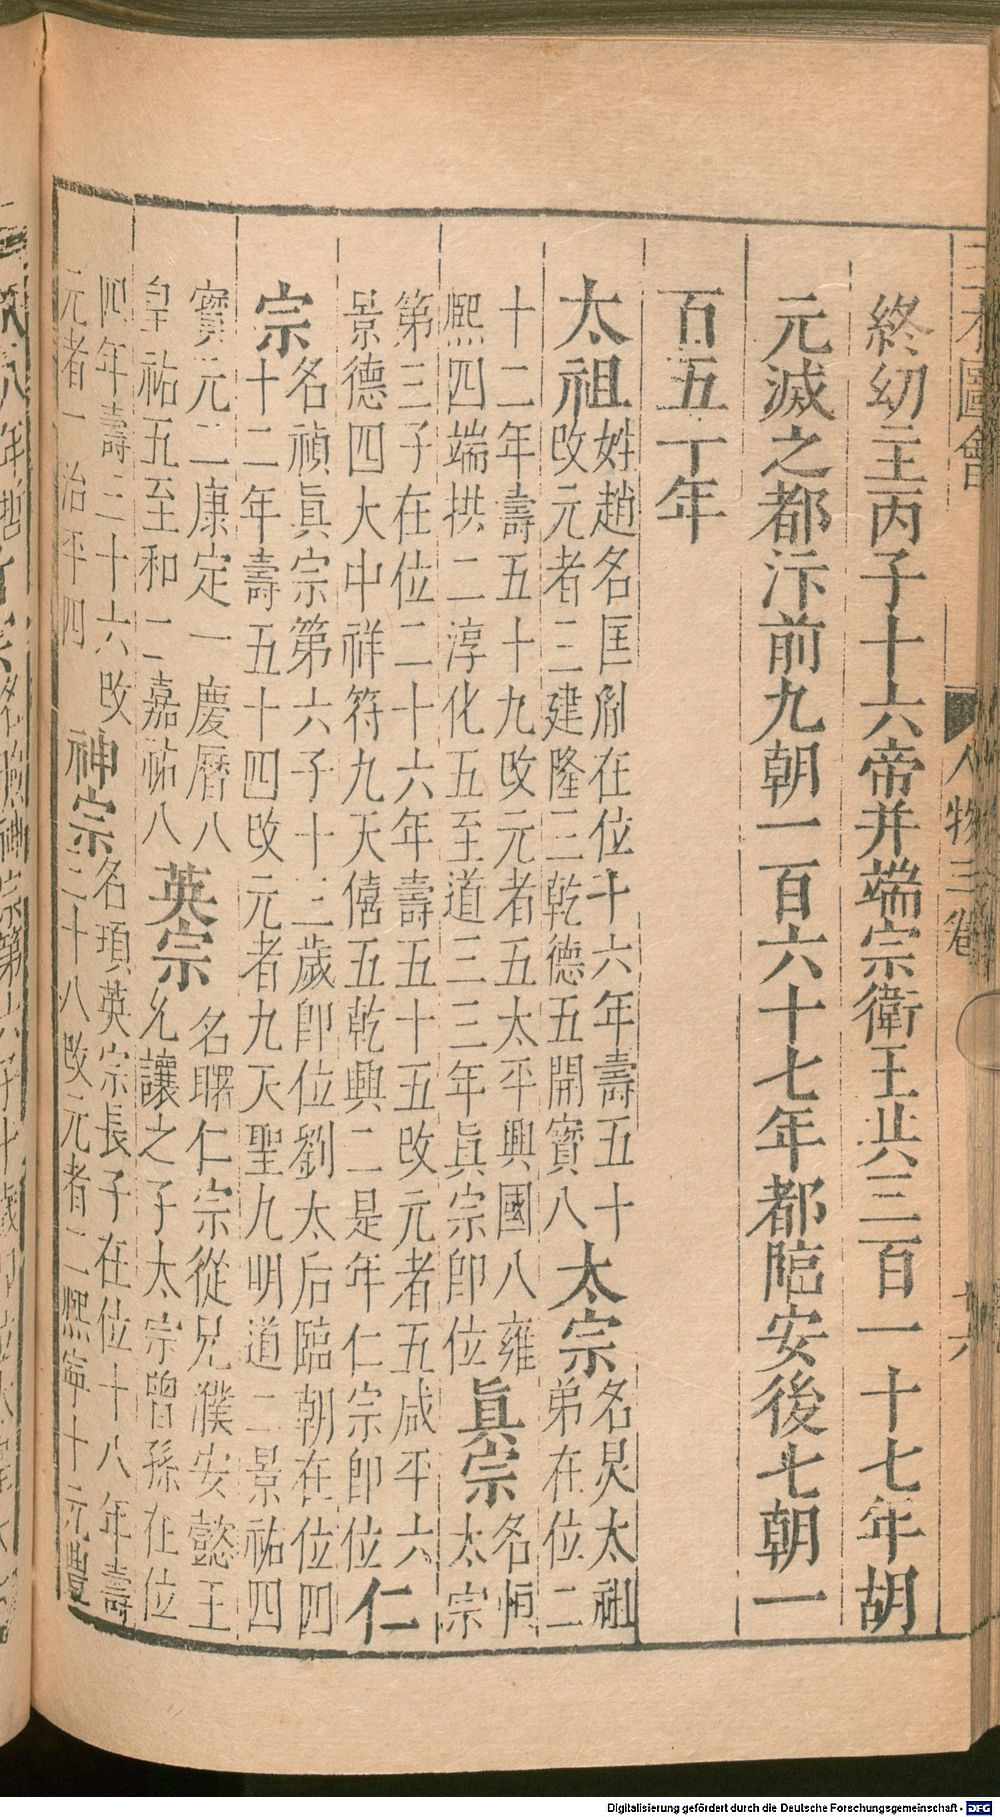 三才圖會 人物三卷 廿六
終幼主丙子十六帝并端宗衛王共三百一十七年胡
元滅之都汴前九朝一百六十七年都臨安後七朝一
百五丁年
太祖
姓趙名匡胤在位十六年壽五十
改元者三建隆三乾德五開寶八
太宗
名炅太祖
弟在位二
十二年壽五十九改元者五太平興國八雍
熈四端拱二淳化五至道三三年眞宗卽位
眞宗
名恒
太宗
第三子在位二十六年壽五十五改元者五咸平六
景德四大中祥符九天僖五乾興二是年仁宗卽位
仁
宗
名禎眞宗第六子十三歲卽位劉太后臨朝在位四
十二年壽五十四改元者九天聖九明道二景祐四
寶元二康定一慶曆八
皇祐五至和二嘉祐八
英宗
名曙仁宗從兄濮安懿王
允讓之子太宗曾孫在位
四年壽三十六改
元者一治平四
神宗
名頊英宗長子在位十八年壽
三十八改元者二熈寧十元豐
Digitalisierung gefördert durch die Deutsche Forschungsgemeinschaft - DFG